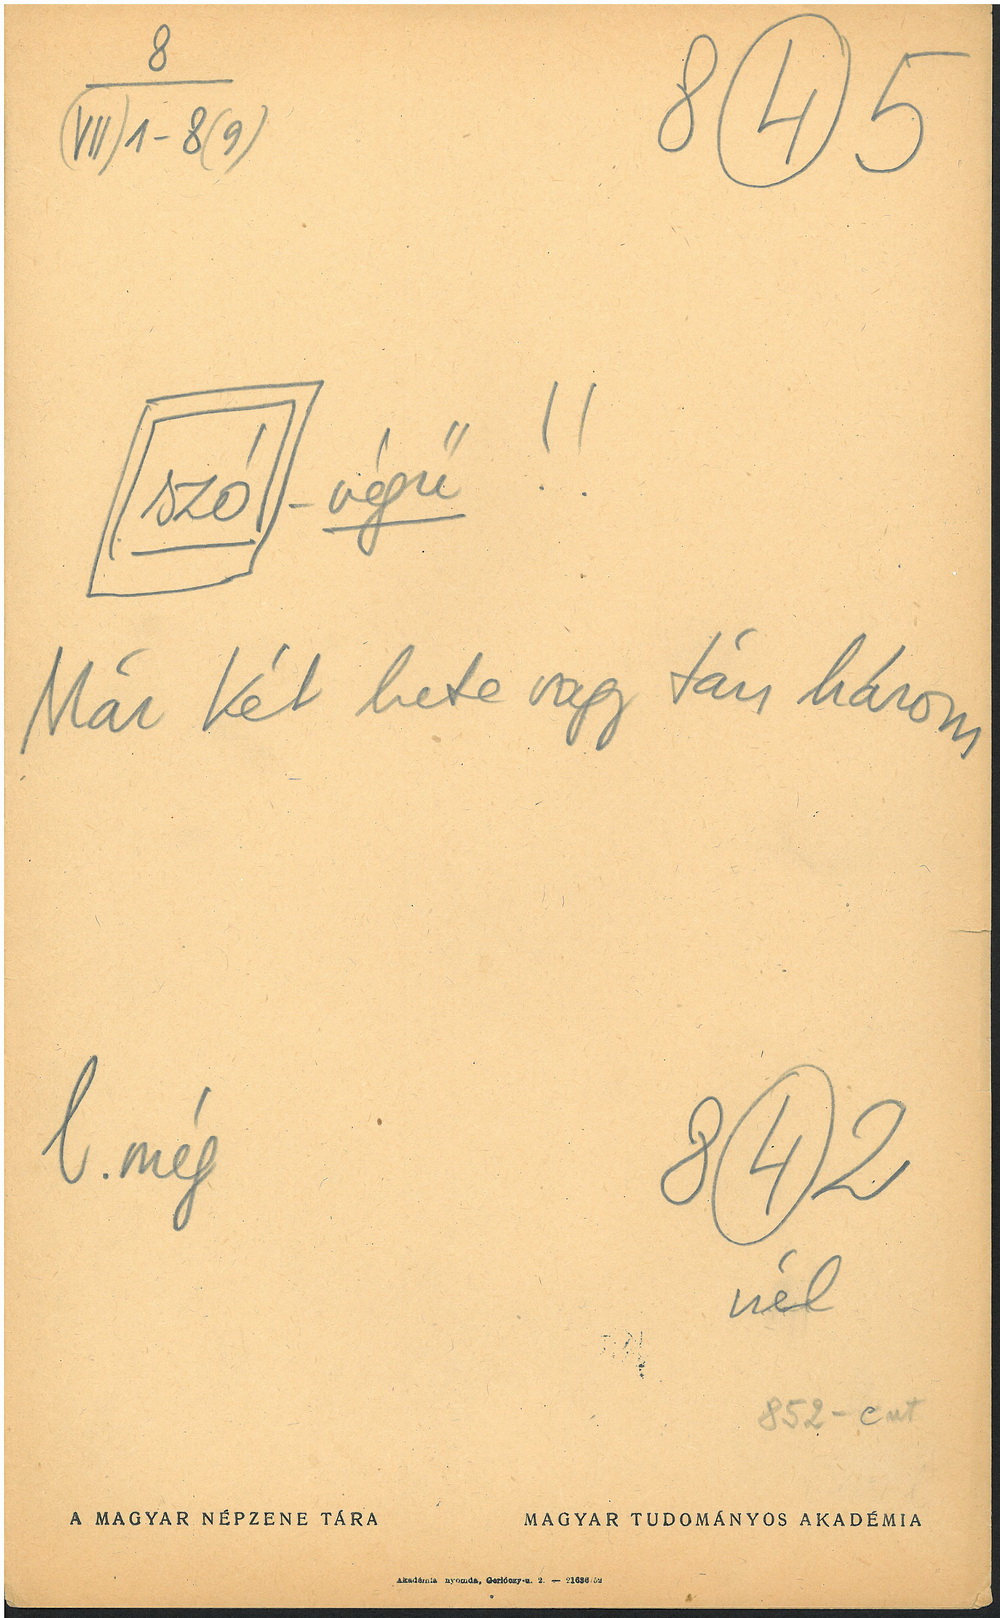 8 8(4)5
(VII) 1-8(9)
szó-végű !!
Már két hete vagy tán három
l. még 8(4)2
nél
852-
A MAGYAR NÉPZENE TÁRA MAGYAR TUDOMÁNYOS AKADÉMIA
Akadémia nyomda, Gerlóczy-u. 2. —